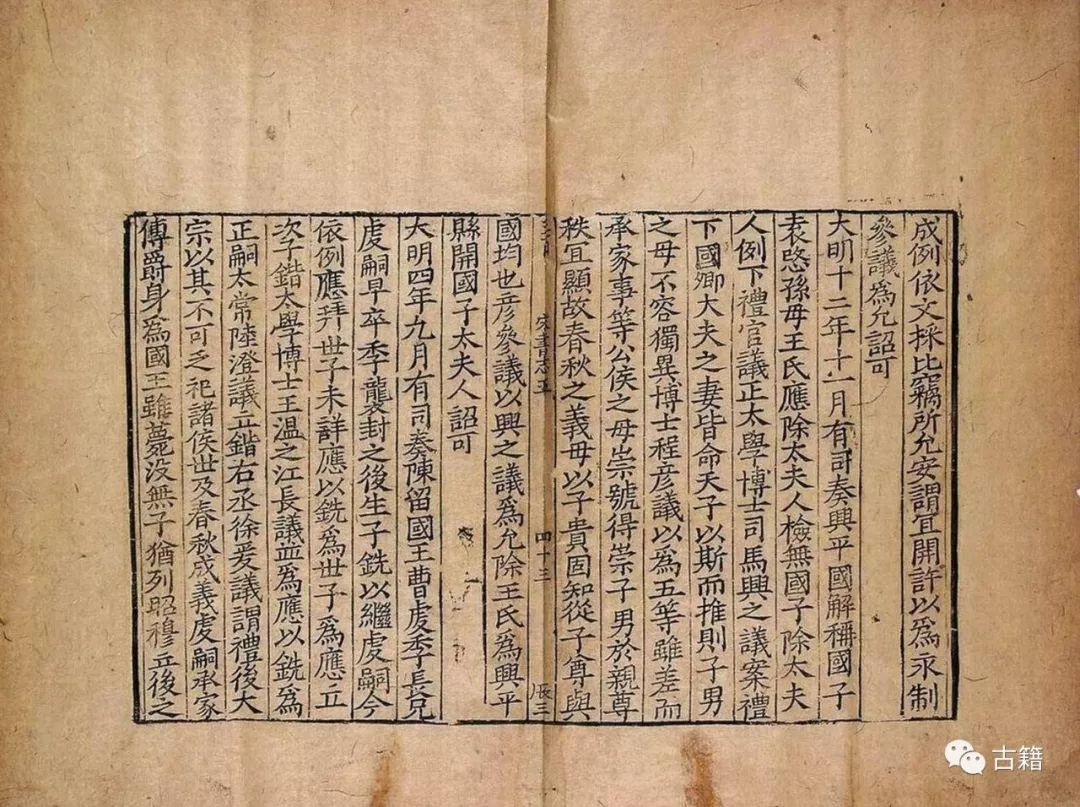 成例依文採比竊所允安謂宜開許以爲永制
參議為允詔可
大明十二年十一月有司奏興平國解稱國子
袁愍孫母王氏應除太夫人檢無國子除太夫
人例下禮官議正太學博士司馬興之議案禮
下國卿大夫之妻皆命天子以斯而推則子男
之母不容獨異博士程彥議以爲五等雖差而
承家事等公侯之母崇號得崇子男於親尊
秩宜顯故春秋之義母以子貴固知從子尊與
宋書志五
四十三
國均也彥參議以興之議爲允除王氏爲興平
縣開國子太夫人詔可
大明四年九月有司奏陳留國王曹虔季長兄
虔嗣早卒季襲封之後生子銑以繼虔嗣今
依例應拜世子未詳應以銑爲世子爲應立
次子鍇太學博士王溫之江長議並爲應以銑爲
正嗣太常陸澄議立鍇右丞徐爰議謂禮後大
宗以其不可乏祀諸侯世及春秋成義虔嗣承家
傳爵身爲國王雖薨没無子猶列昭穆立後之
古籍